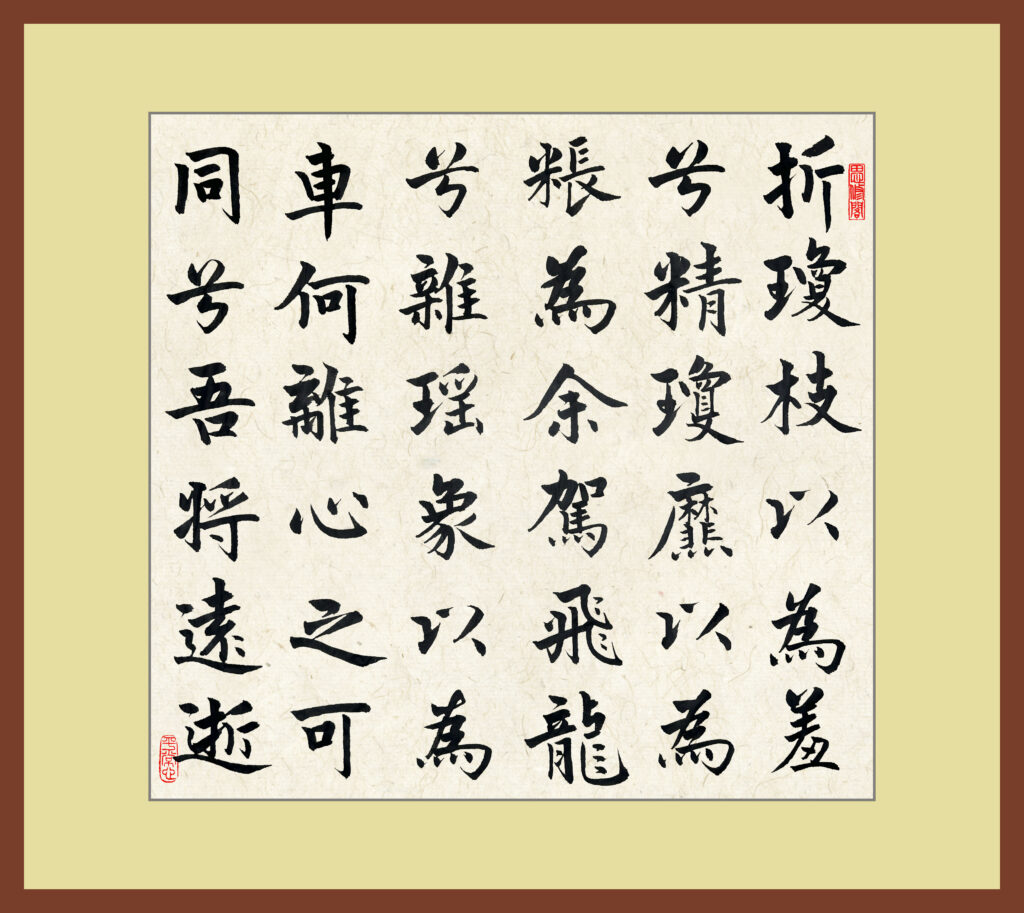 折瓊枝以為羞
兮精瓊爢以為
粻為余駕飛龍
兮雜瑶象以為
車何離心之可
同兮吾將遠逝
思修閣
平常心